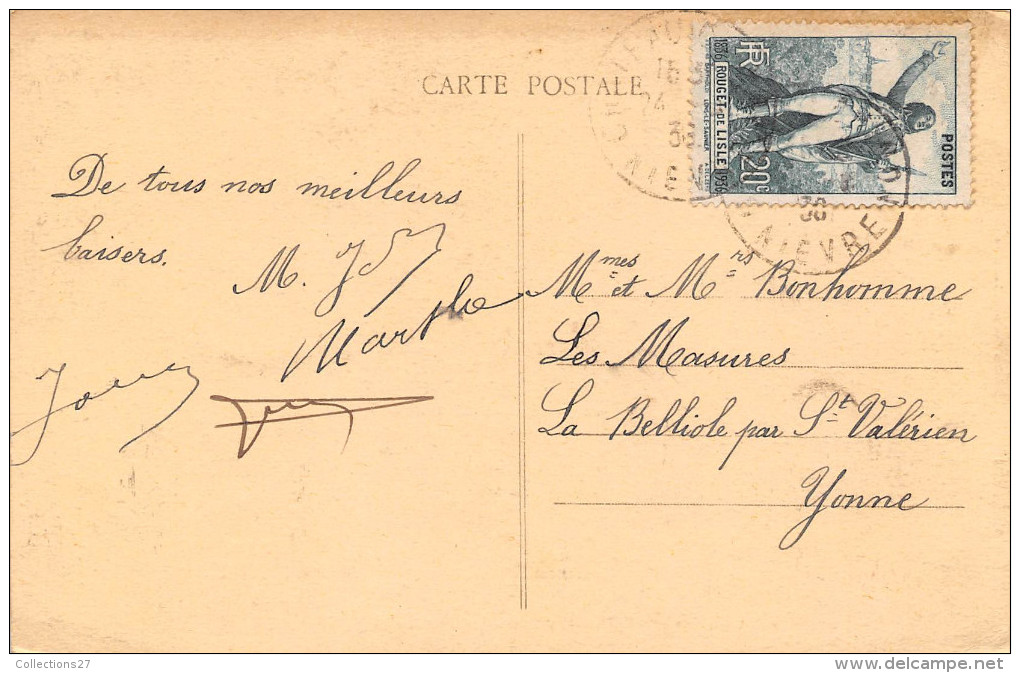 CARTE POSTALE
RF
POSTES
1836 ROUGET DE LISLE 1936
20c
NIEVRE
De tous nos meilleurs
baisers.
Marthe
Mmes et Mrs Bonhomme
Les Masures
La Belliole par St Valérien
Yonne
Collections27
www.delcampe.net